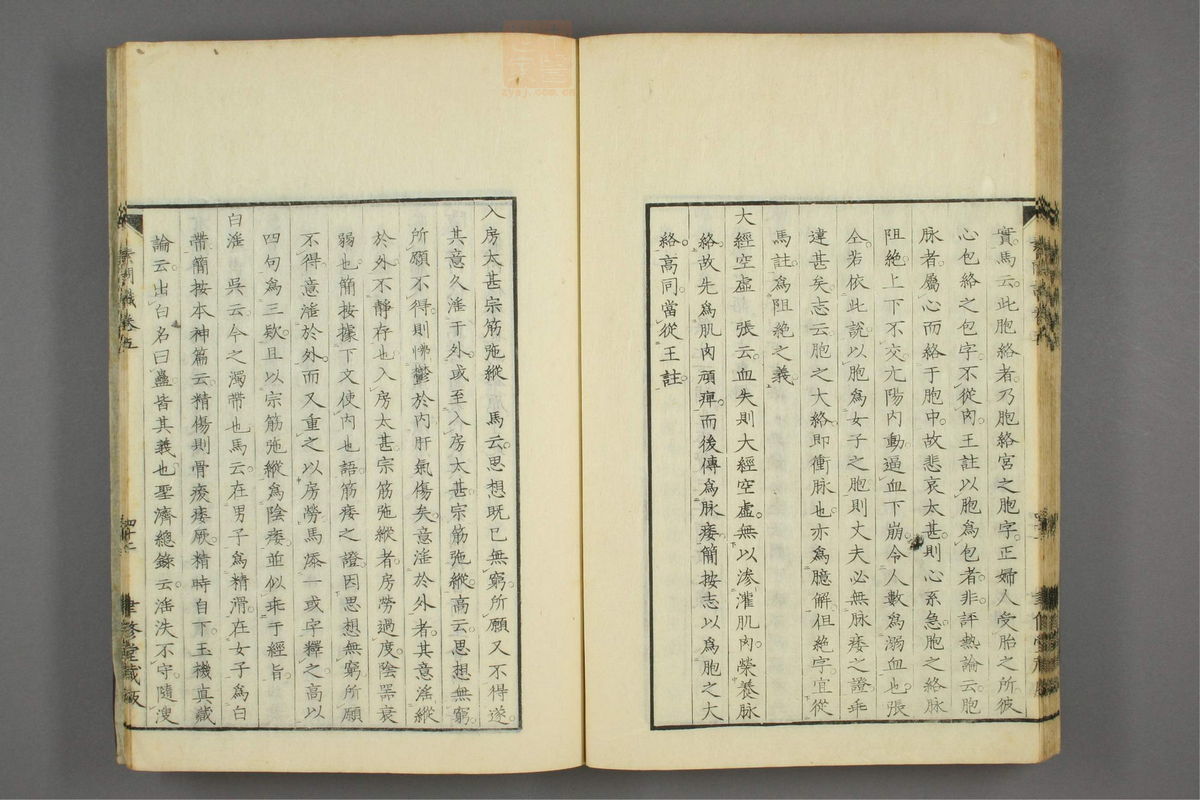 實。馬云。此胞絡者。乃胞絡宮之胞字。正婦人受胎之所。彼
心包絡之包字。不從肉。王註以胞為包者。非。評熱論云。胞
脉者。屬心而絡于胞中。故悲哀太甚。則心系急。胞之絡脉
阻絕。上下不交。亢陽內動。逼血下崩。令人數為溺血也。張
仝。若依此說。以胞為女子之胞。則丈夫必無脉痿之證。乖
違甚矣。志云。胞之大絡。即衝脉也。亦為臆解。但絕字。宜從
馬註為阻絕之義。
大經空虛 張云。血失則大經空虛。無以滲灌肌肉。榮養脉
絡。故先為肌肉頑痺。而後傳為脉痿。簡按志以為胞之大
絡。高同。當從王註。
入房太甚宗筋弛縱 馬云。思想既已無窮。所願又不得遂。
其意久淫于外。或至入房太甚。宗筋弛縱。高云。思想無窮。
所願不得。則怫鬱於內。肝氣傷矣。意淫於外者。其意淫縱
於外。不靜存也。入房太甚。宗筋弛縱者。房勞過度。陰器衰
弱也。簡按據下文使內也語。筋痿之證。因思想無窮。所願
不得。意淫於外。而又重之以房勞。馬添一或字釋之。高以
四句為三款。且以宗筋弛縱為陰痿。並似乖于經旨。
白淫 吳云。今之濁帶也。馬云。在男子為精滑。在女子為白
帶。簡按本神篇云。精傷則骨痠痿厥。精時自下。玉機真藏
論云。出白。名曰蠱。皆其義也。聖濟總錄云。淫泆不守。隨溲
素問識卷五
四十二
聿修堂藏版